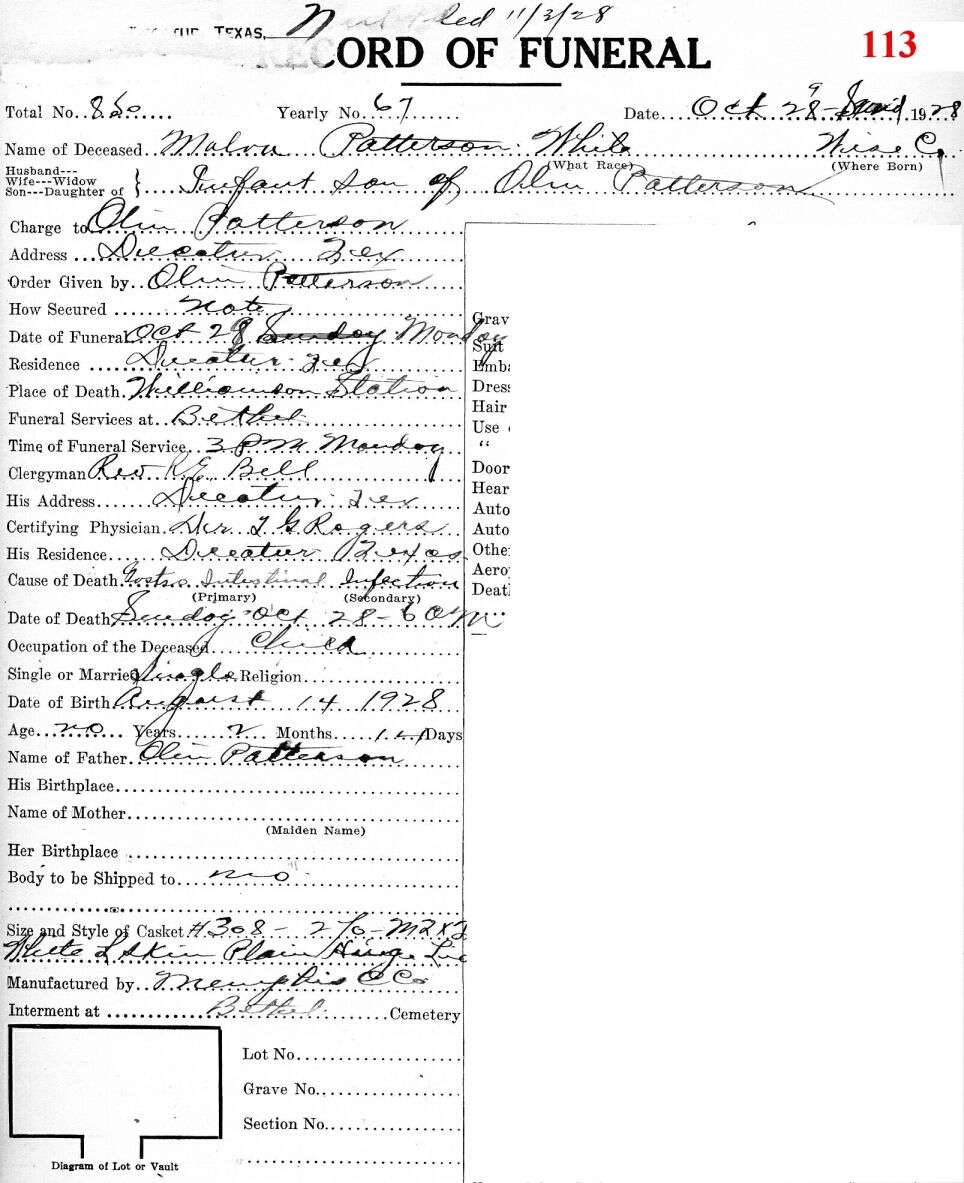 TEXAS, led 11/3/28
RECORD OF FUNERAL 113
Total No. 860 Yearly No. 67 Date Oct 28 9 1928
Name of Deceased Malvn Patterson White Wise Co
(What Race) (Where Born)
Husband---
Wife---Widow
Son---Daughter of } Infant son of Olin Patterson
Charge to Olin Patterson
Address Decatur Tex
Order Given by Olin Patterson
How Secured Note
Date of Funeral Oct 29 Sunday Monday
Residence Decatur Tex
Place of Death Williamson Station
Funeral Services at Bethel
Time of Funeral Service 3 PM Monday
Clergyman Rev K.E. Bell
His Address Decatur Tex
Certifying Physician Dr T G Rogers
His Residence Decatur Texas
Cause of Death Gastro Intestinal Infection
(Primary) (Secondary)
Date of Death Sunday Oct 28 - 6 AM
Occupation of the Deceased Child
Single or Married Single Religion
Date of Birth August 14 1928
Age no Years 2 Months 14 Days
Name of Father Olin Patterson
His Birthplace
Name of Mother
(Maiden Name)
Her Birthplace
Body to be Shipped to no
Size and Style of Casket #308 - 2/0 - M2x2
White L Skin Plain Hinge
Manufactured by Memphis C Co
Interment at Bethel Cemetery
Lot No.
Grave No.
Section No.
Diagram of Lot or Vault
Grav
Suit
Emba
Dress
Hair
Use
"
Door
Hear
Auto
Auto
Othe
Aero
Deat